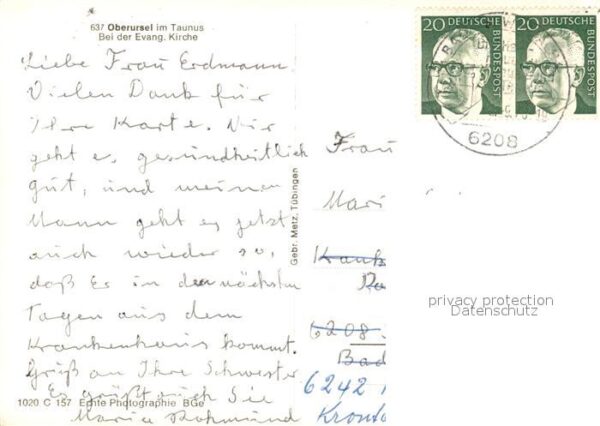 637 Oberursel im Taunus
Bei der Evang. Kirche
Liebe Frau Erdmann
Vielen Dank für
Ihre Karte. Mir
geht es gesundheitlich
gut, und meinem
Mann geht es jetzt
auch wieder so,
daß Er in den nächsten
Tagen aus dem
Krankenhaus kommt.
Gruß an Ihre Schwester
Es grüßt auch Sie
Maria Rohmund
1020 C 157 Echte Photographie BGe
Gebr. Metz, Tübingen
20 DEUTSCHE BUNDESPOST
20 DEUTSCHE BUNDESPOST
6208
Frau
Mari
Krank
6208
Bad
6242
Kronb
privacy protection
Datenschutz